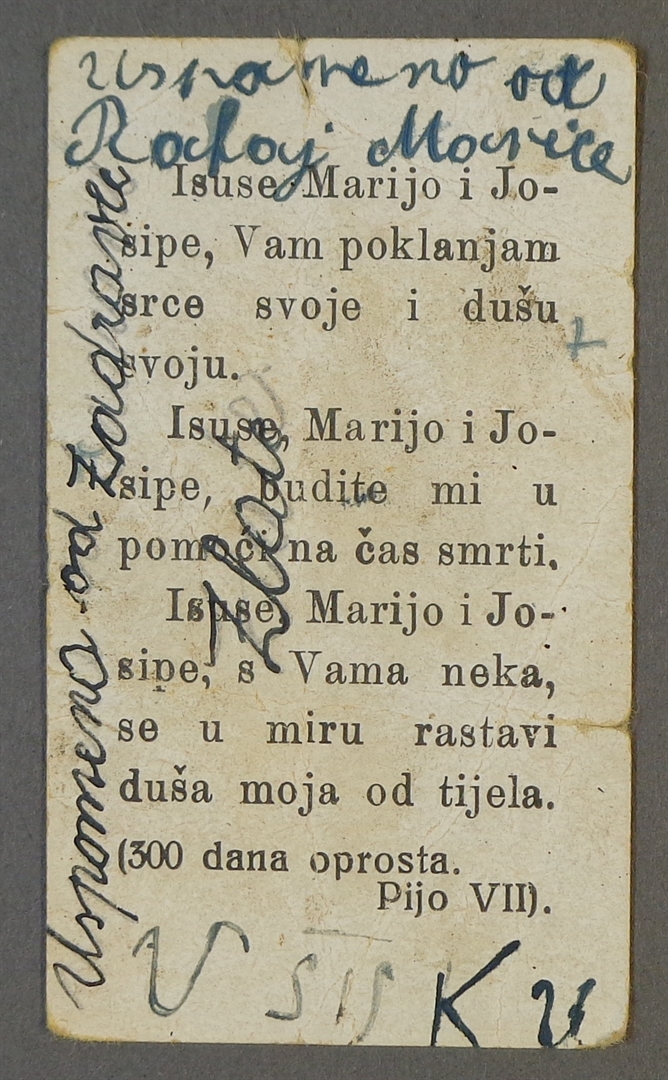 uspomeno od
Rataj Marice
Isuse, Marijo i Jo-
sipe, Vam poklanjam
srce svoje i dušu
svoju.
Isuse, Marijo i Jo-
sipe, budite mi u
pomoći na čas smrti.
Isuse, Marijo i Jo-
sipe, s Vama neka,
se u miru rastavi
duša moja od tijela.
(300 dana oprosta.
Pijo VII).
Uspomeno od Zadravec
Zlate
V SIS K U